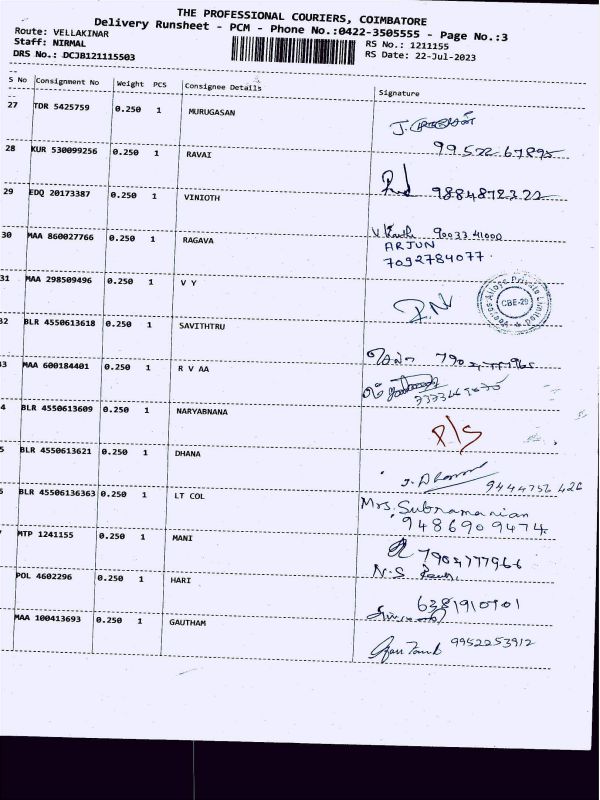 THE PROFESSIONAL COURIERS, COIMBATORE
Delivery Runsheet - PCM - Phone No.:0422-3505555 - Page No.:3
Route: VELLAKINAR RS No.: 1211155
Staff: NIRMAL RS Date: 22-Jul-2023
DRS No.: DCJB121115503
S No Consignment No Weight PCS Consignee Details Signature
27 TDR 5425759 0.250 1 MURUGASAN
28 KUR 530099256 0.250 1 RAVAI
29 EDQ 20173387 0.250 1 VINIOTH 9884872322
30 MAA 860027766 0.250 1 RAGAVA 90033 41000
ARJUN
7092784077
31 MAA 298509496 0.250 1 V Y CBE-29
32 BLR 4550613618 0.250 1 SAVITHTRU
3 MAA 600184401 0.250 1 R V AA
4 BLR 4550613609 0.250 1 NARYABNANA P/S
5 BLR 4550613621 0.250 1 DHANA 9444756 426
6 BLR 45506136363 0.250 1 LT COL Mrs. Subramanian
9486909474
MTP 1241155 0.250 1 MANI 7904777966
POL 4602296 0.250 1 HARI 6381910901
MAA 100413693 0.250 1 GAUTHAM 9952253912